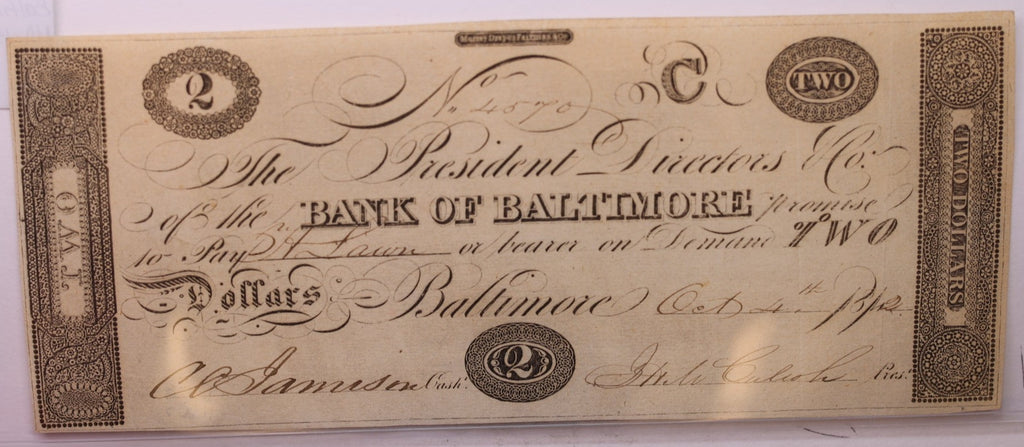 Murray Draper Fairman & Co.
2
No. 4570
C
TWO
The President Directors & Co:
of the BANK OF BALTIMORE promise
to Pay or bearer on Demand TWO
Dollars Baltimore Oct 4th
Cash.r
2
Pres.t
TWO
TWO DOLLARS